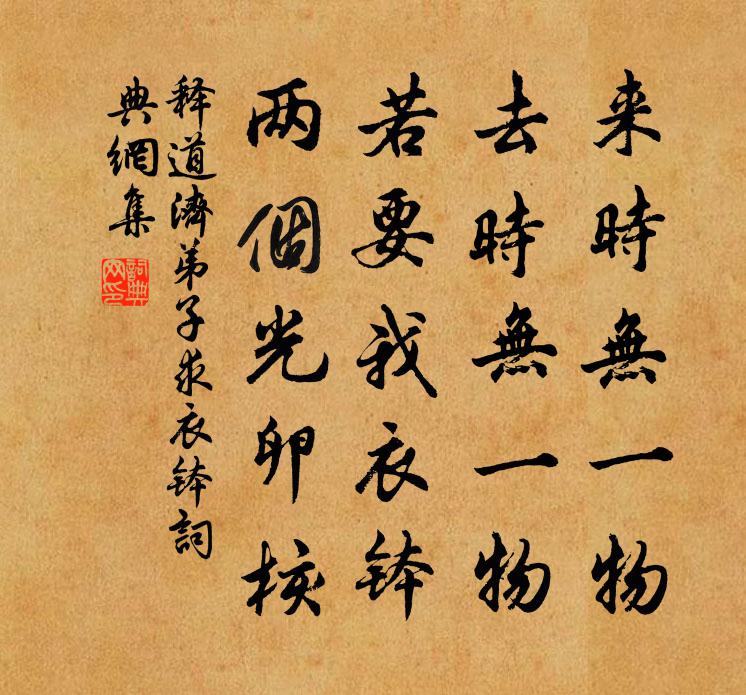 来時無一物
去時無一物
若要我衣鉢
两個光卵核
释道濟弟子求衣鉢詞
典網集
詞典网印